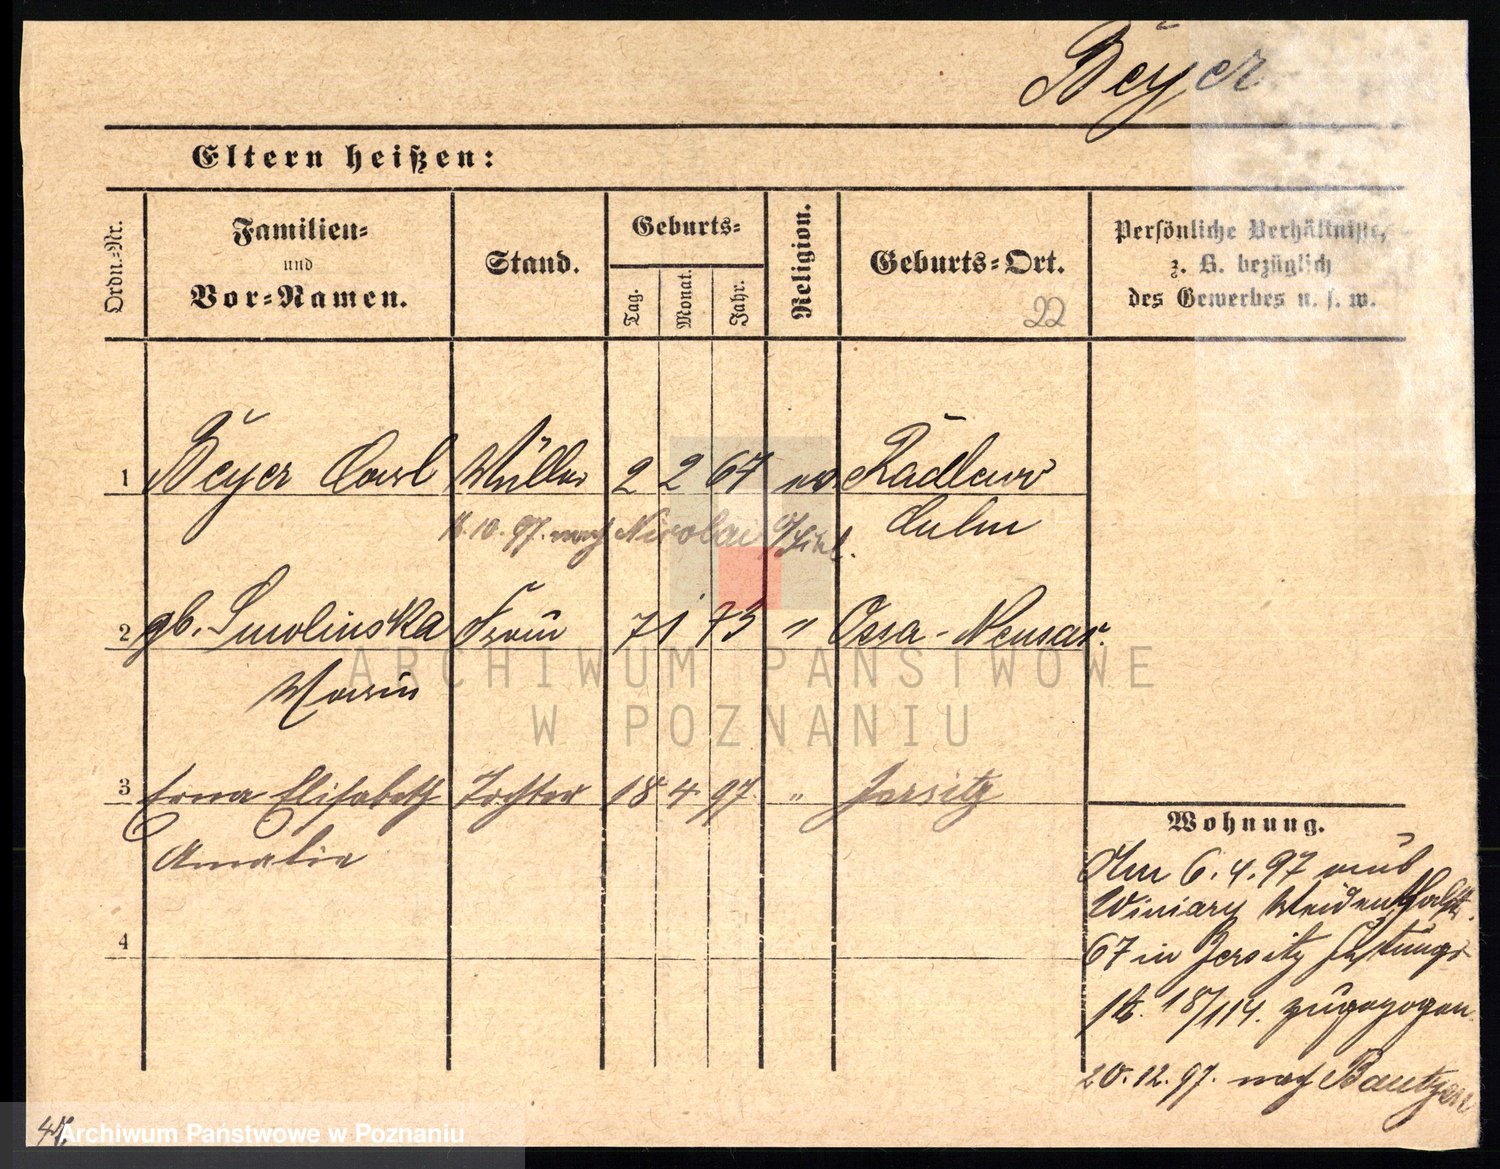 Beyer
Eltern heißen:
Ordn.-Nr.
Familien-
und
Vor-Namen.
Stand.
Geburts-
Tag.
Monat.
Jahr.
Religion.
Geburts-Ort.
22
Persönliche Verhältnisse,
z. B. bezüglich
des Gewerbes u. s. w.
1 Beyer Carl Müller 2 2 67 ev Radlau
10. 97. nach Nicolai
Culm
2 gb. Smolinska Frau 7 1 73 " Ossa-Neusas.
Marie
3 Erna Elisabeth Tochter 18 4 97 " Jersitz
Amalie
4
Wohnung.
Am 6.4.97 aus
Winiary
67 in Jersitz
18/114. zugezogen
20.12.97. nach Bautzen
ARCHIWUM PAŃSTWOWE
W POZNANIU
Archiwum Państwowe w Poznaniu